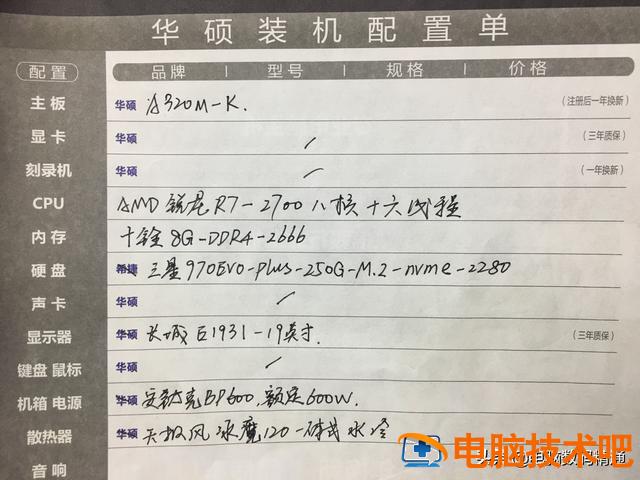 华硕装机配置单
配置 品牌 | 型号 | 规格 | 价格
主板 华硕 A320M-K. (注册后一年换新)
显卡 华硕 / (三年质保)
刻录机 华硕 / (一年换新)
CPU AMD 锐龙R7-2700 八核十六线程
内存 十铨8G-DDR4-2666
硬盘 希捷 三星970EVO-Plus-250G-M.2-nvme-2280
声卡 华硕 /
显示器 华硕 长城E1931-19英寸. (三年质保)
键盘 鼠标 华硕 /
机箱 电源 华硕 安钛克BP600,额定600W.
散热器 华硕 天极风冰魔120一体式水冷
音响
电脑技术吧
头条@电脑数码精通